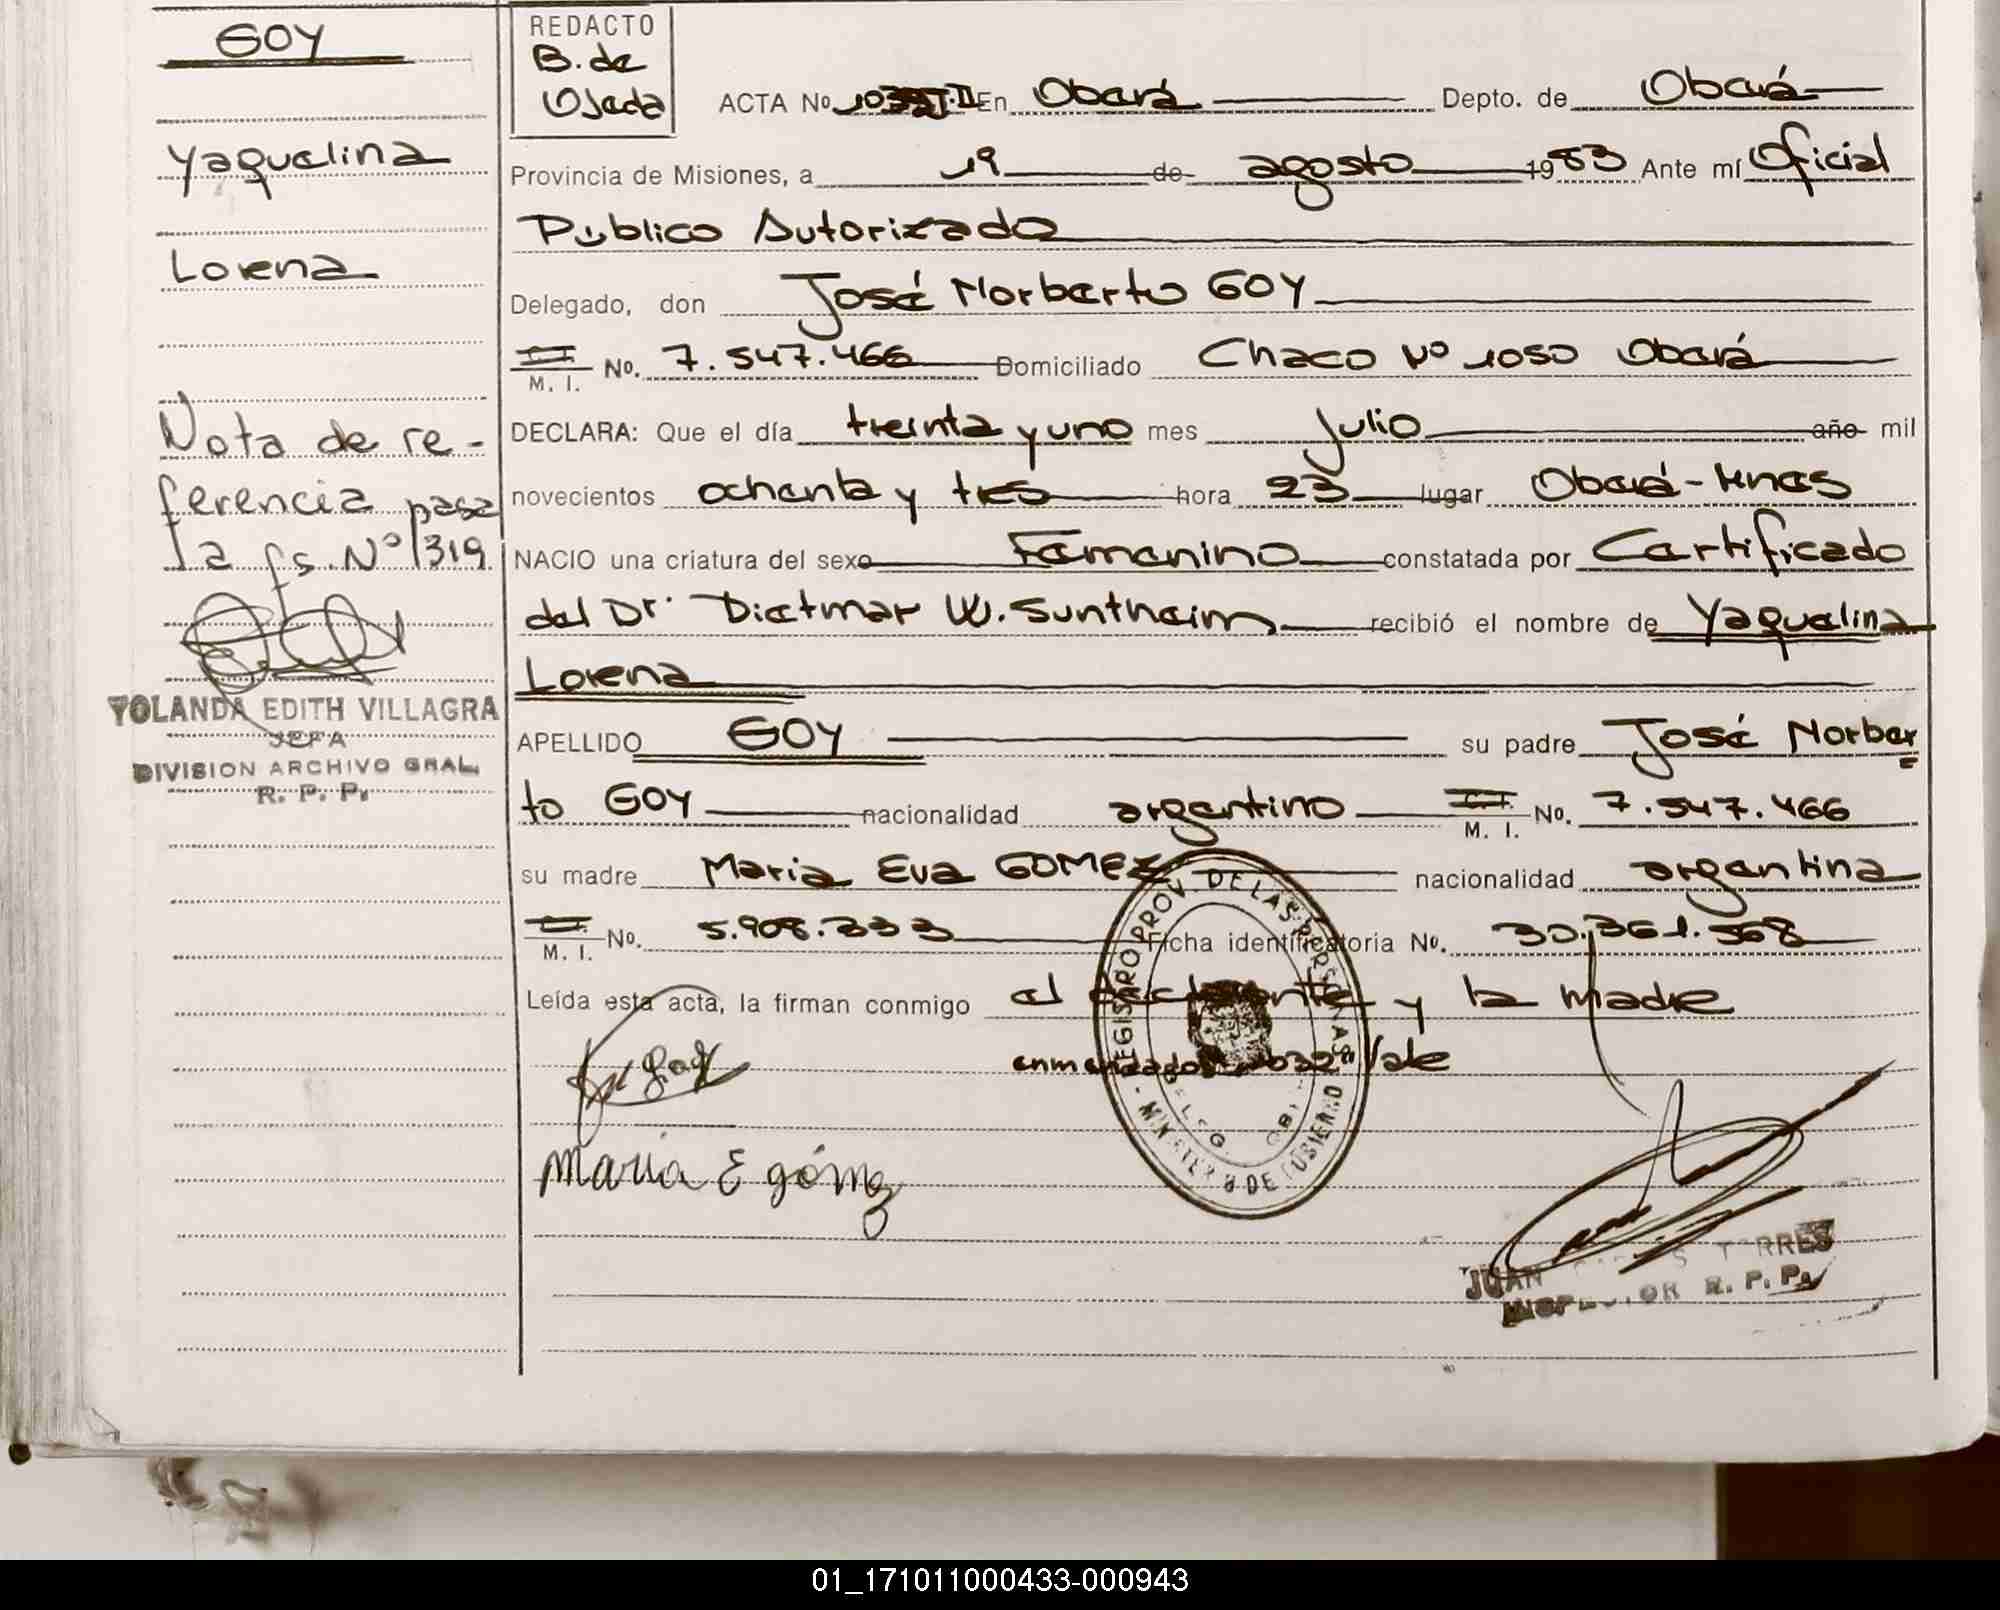 GOY
Yaquelina
Lorena
Nota de re-
ferencia pasa
a fs. Nº 319
YOLANDA EDITH VILLAGRA
JEFA
DIVISION ARCHIVO GRAL.
R. P. P.
REDACTO
B. de
Ojeda
ACTA No T.II En Oberá Depto. de Oberá
Provincia de Misiones, a 19 de agosto 1983 Ante mí Oficial
Público Autorizado
Delegado, don José Norberto GOY
C.I. M. I. No. 7.547.466 Domiciliado Chaco Nº 1050 Oberá
DECLARA: Que el día treinta y uno mes Julio año mil
novecientos ochenta y tres hora 23 lugar Oberá-Mnes
NACIO una criatura del sexo Femenino constatada por Certificado
del Dr. Dietmar W. Suntheim recibió el nombre de Yaquelina
Lorena
APELLIDO GOY su padre José Norber
to GOY nacionalidad argentino C.I. M. I. No. 7.547.466
su madre Maria Eva GOMEZ nacionalidad argentina
C.I. M. I. No. 5.908.333 Ficha identificatoria No. 30.361.568
Leída esta acta, la firman conmigo el declarante y la madre
enmendados 1032 Vale
REGISTRO PROV. DE LAS PERSONAS
MINISTERIO DE GOBIERNO
Maria E gómez
JUAN TORRES
INSPECTOR R. P. P.
01_171011000433-000943